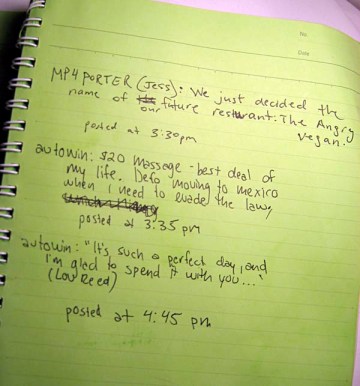 No.
Date
MP4 PORTER (Jess): We just decided the
name of our future restwant: The Angry
Vegan!
posted at 3:30pm
autowin: $20 massege - best deal of
my life. Defo moving to mexico
when I need to evade the law,
posted at 3:35 pm
autowin: "It's such a perfect day, and
I'm glad to spend it with you..."
(Lou Reed)
posted at 4:45 pm